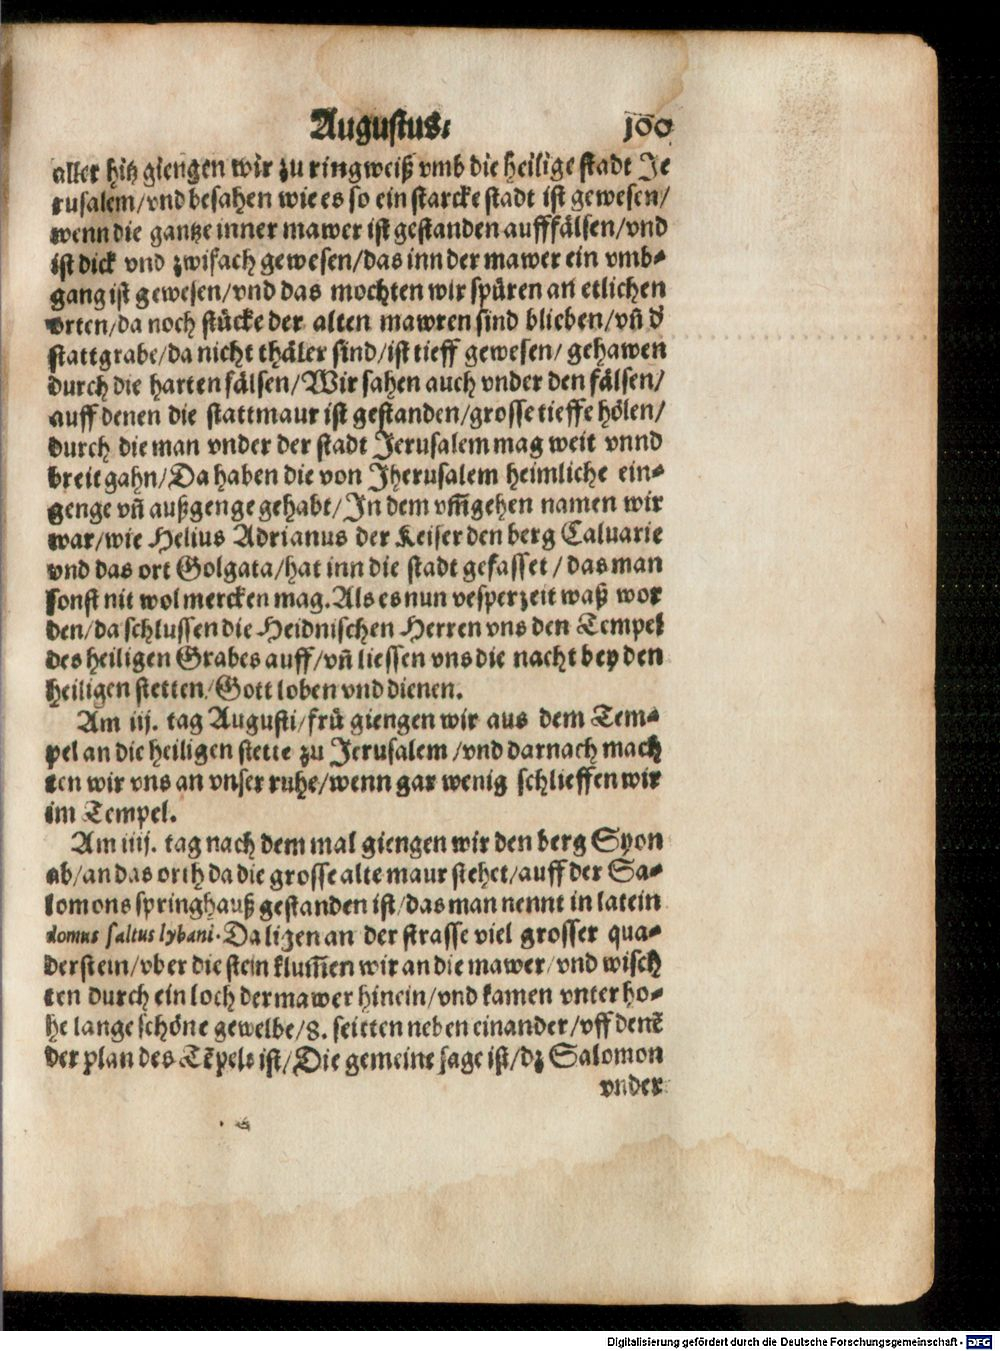 Augustus. 100
aller hitz giengen wir zu ringweiß vmb die heilige stadt Je
rusalem/vnd besahen wie es so ein starcke stadt ist gewesen/
wenn die gantze inner mawer ist gestanden auff fälsen/vnd
ist dick vnd zwifach gewesen/das inn der mawer ein vmb-
gang ist gewesen/vnd das mochten wir spüren an etlichen
orten/da noch stücke der alten mawren sind blieben/vñ d'
stattgrabe/da nicht thäler sind/ist tieff gewesen/gehawen
durch die harten fälsen/Wir sahen auch vnder den fälsen/
auff denen die stattmaur ist gestanden/grosse tieffe hölen/
durch die man vnder der stadt Jerusalem mag weit vnnd
breit gahn/Da haben die von Jherusalem heimliche ein-
genge vñ außgenge gehabt/In dem vm̃gehen namen wir
war/wie Helius Adrianus der Keiser den berg Caluarie
vnd das ort Golgata/hat inn die stadt gefasset/das man
sonst nit wol mercken mag. Als es nun vesperzeit waß wor
den/da schlussen die Heidnischen Herren vns den Tempel
des heiligen Grabes auff/vñ liessen vns die nacht bey den
heiligen stetten/Gott loben vnd dienen.
Am iij. tag Augusti/frü giengen wir aus dem Tem-
pel an die heiligen stette zu Jerusalem/vnd darnach mach
ten wir vns an vnser ruhe/wenn gar wenig schlieffen wir
im Tempel.
Am iiij. tag nach dem mal giengen wir den berg Syon
ab/an das orth da die grosse alte maur stehet/auff der Sa-
lomons springhauß gestanden ist/das man nennt in latein
domus saltus lybani. Da ligen an der strasse viel grosser qua-
derstein/vber die stein klum̃en wir an die mawer/vnd wisch
ten durch ein loch der mawer hinein/vnd kamen vnter ho-
he lange schöne gewelbe/8. seitten neben einander/vff denẽ
der plan des Tẽpels ist/Die gemeine sage ist/dz Salomon
vnder
Digitalisierung gefördert durch die Deutsche Forschungsgemeinschaft - DFG